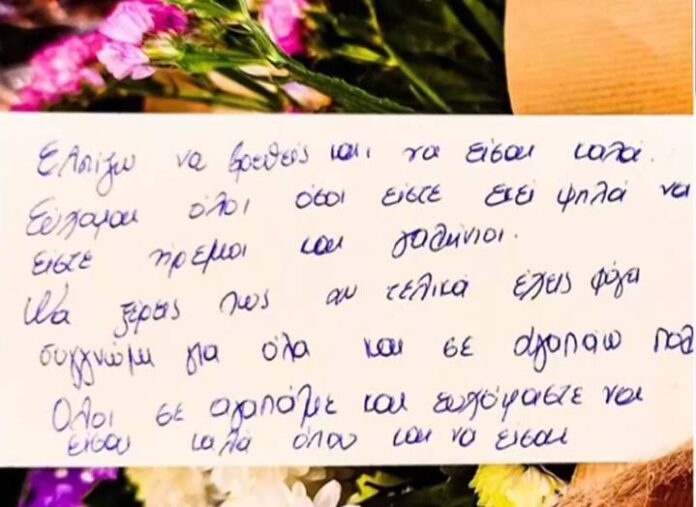 Ελπίζω να βρεθείς και να είσαι καλά.
Εύχομαι όλοι όσοι είστε εκεί ψηλά να
είστε ήρεμοι και γαλήνιοι.
Να ξέρεις πως αν τελικά έχεις φύγει
συγγνώμη για όλα και σε αγαπάω πολ
Όλοι σε αγαπάμε και ευχόμαστε να
είσαι καλά όπου και να είσαι